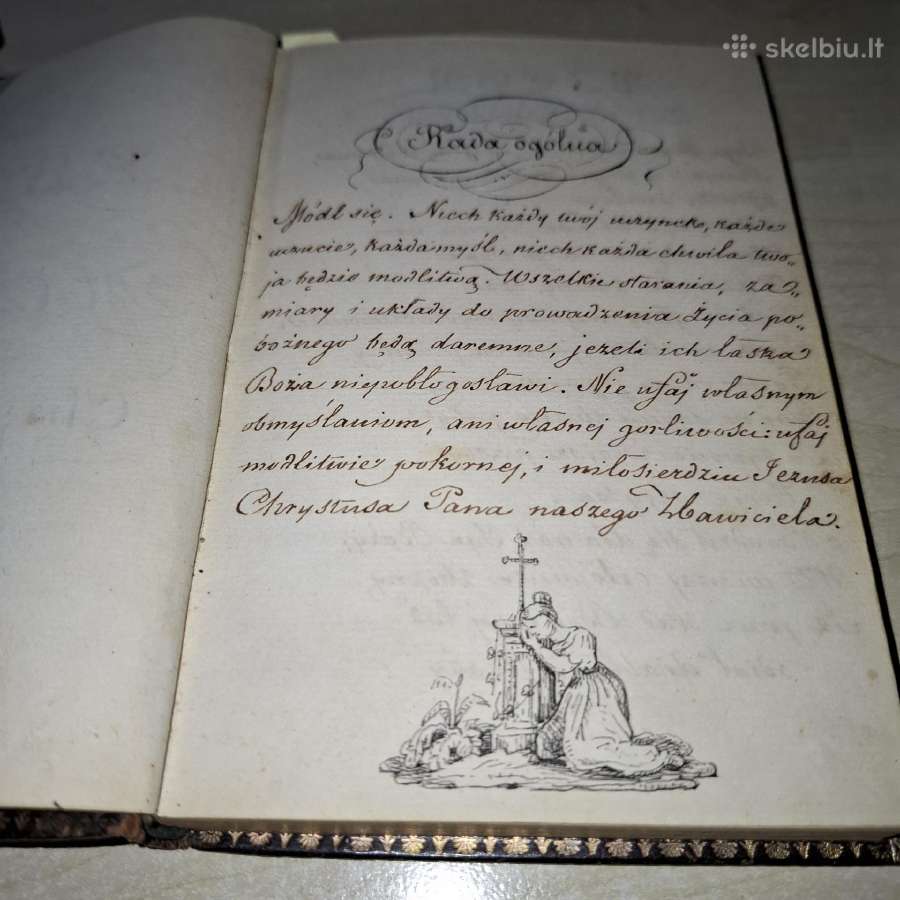 skelbiu.lt
Rada ogólna
Módl się. Niech każdy twój uczynek, każde
uczucie, każda myśl, niech każda chwila two„
ja będzie modlitwą. Wszelkie starania, za„
miary i układy do prowadzenia Życia po„
bożnego będą daremne, jeżeli ich łaska
Boża niepobłogosławi. Nie ufaj własnym
obmyślaniom, ani własnej gorliwości: ufaj
modlitwie pokornej, i miłosierdziu Jezusa
Chrystusa Pana naszego Zbawiciela.